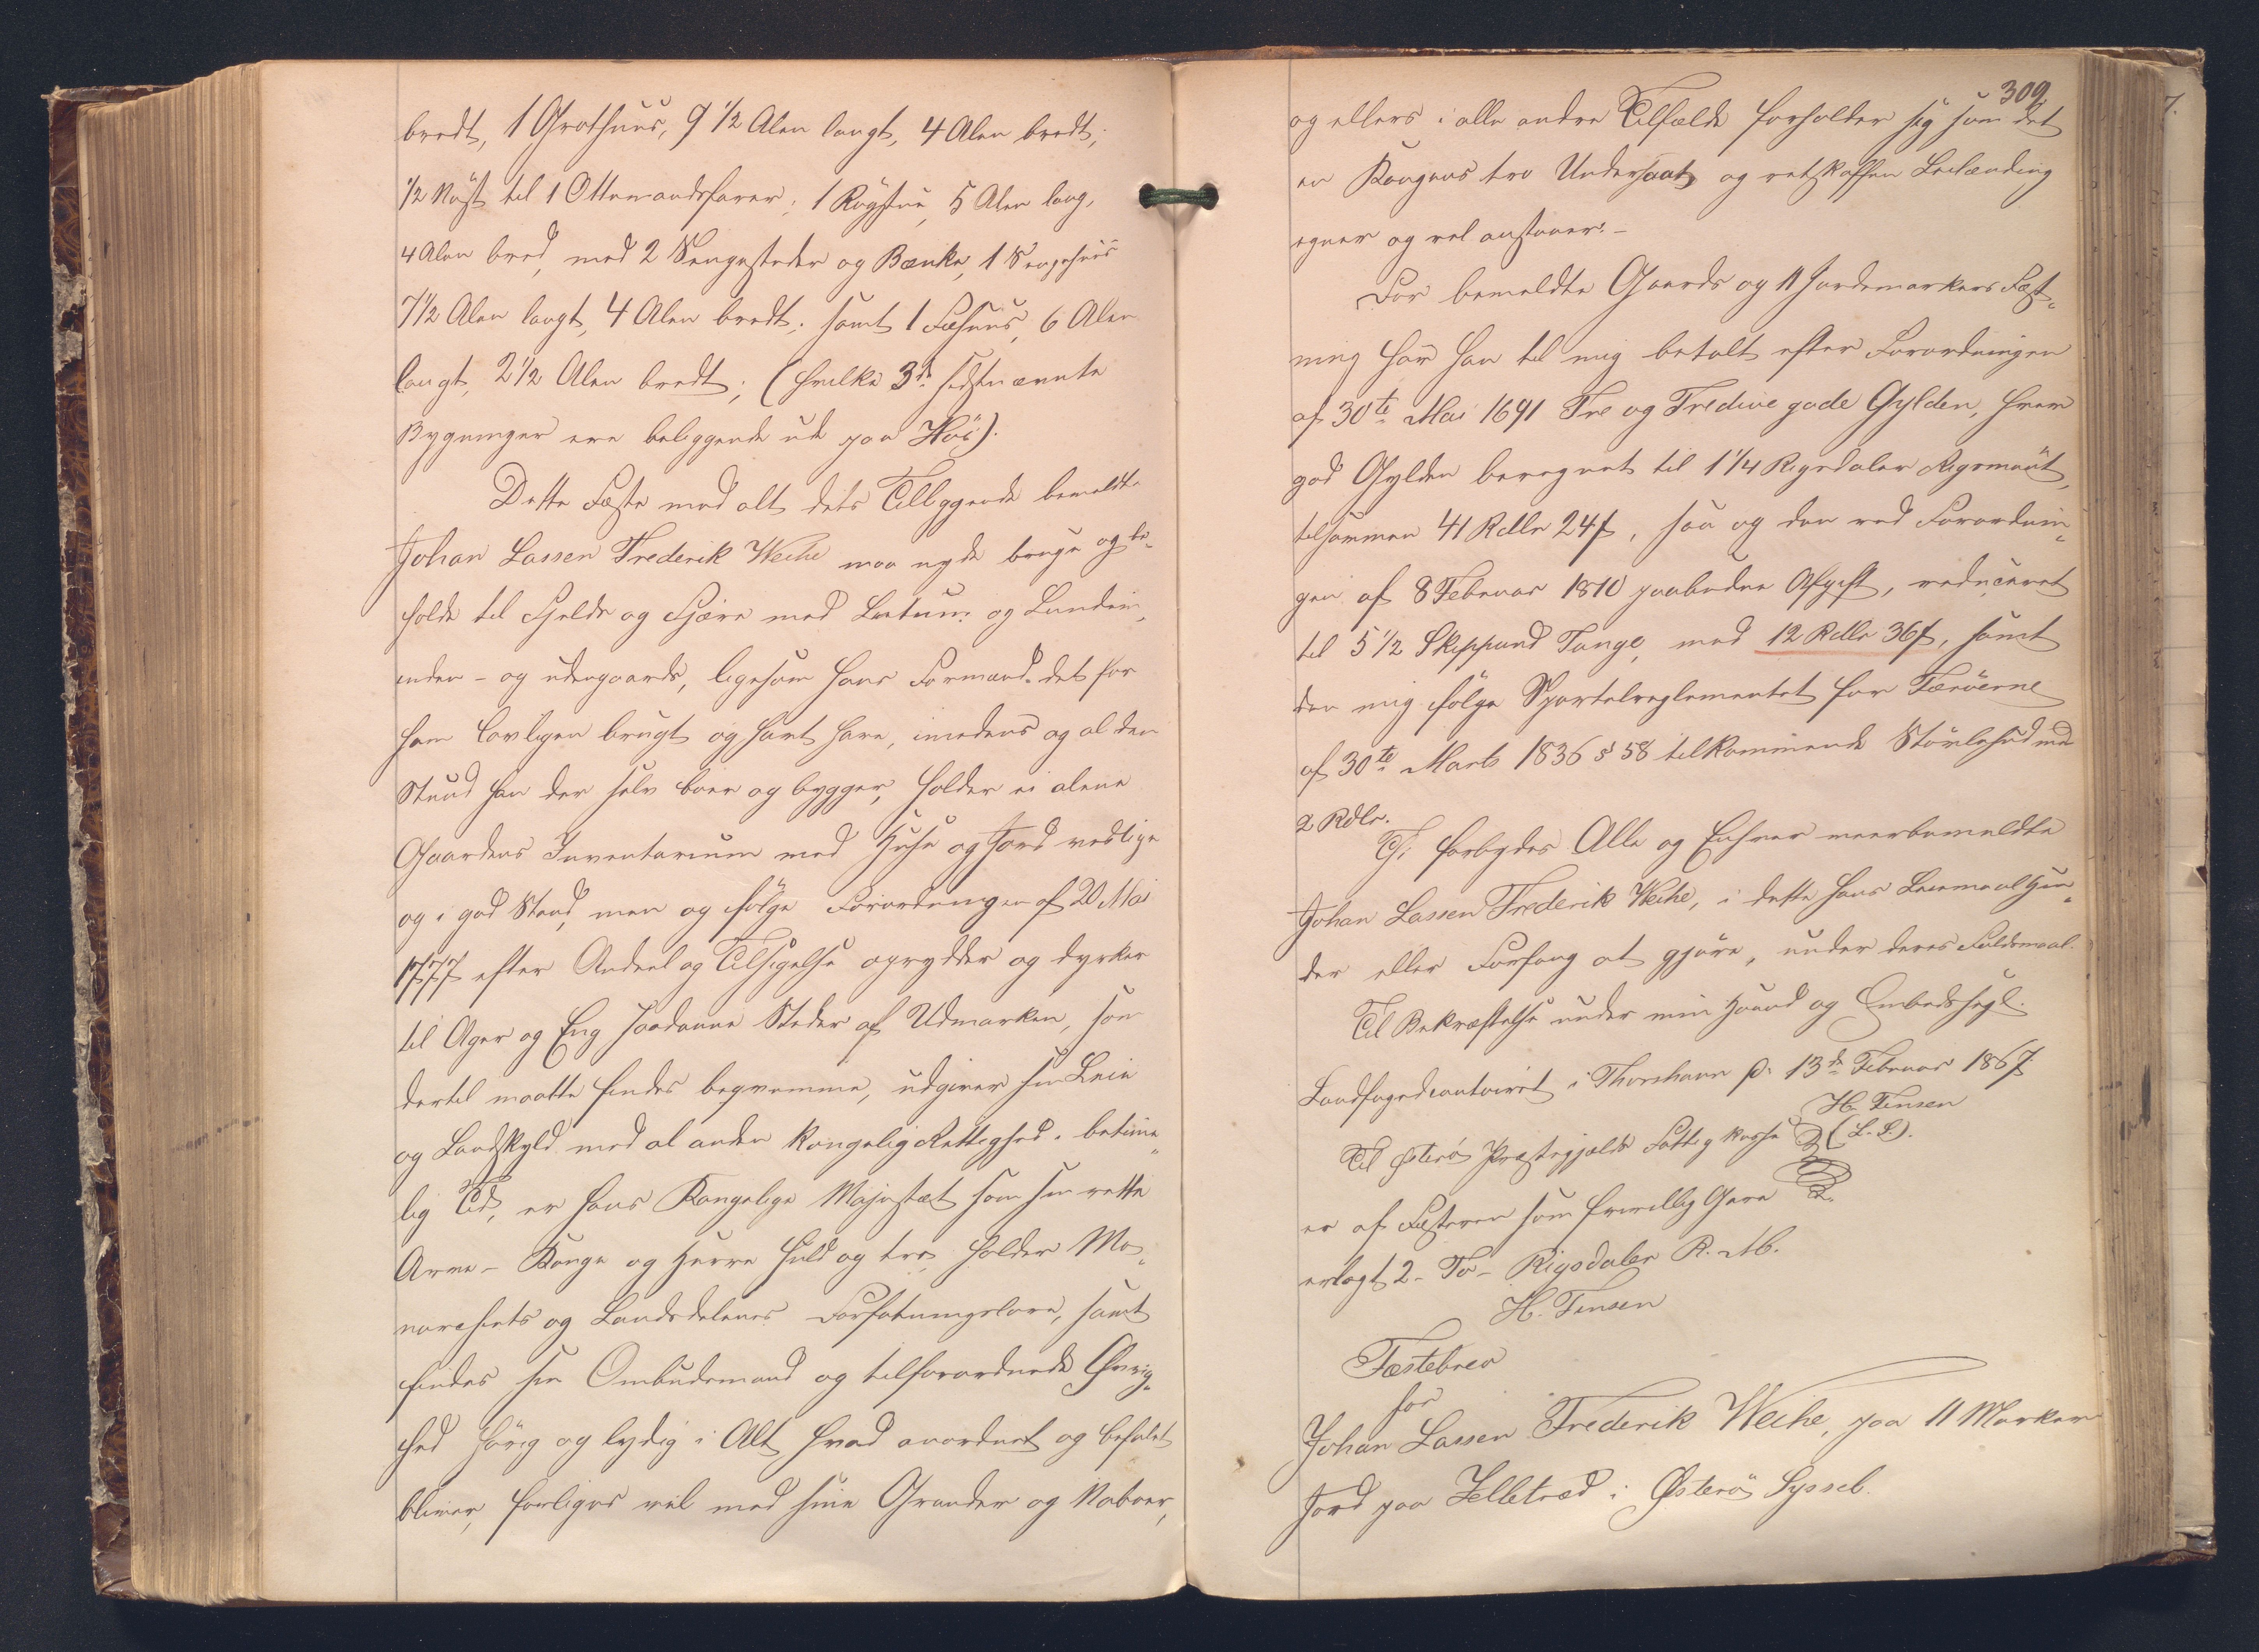 bredt, 1 Grothuus, 9 1/2 Alen langt, 4 Alen bredt;
1/2 Nøst til 1 Ottemandsfarer; 1 Røgstue, 5 Alen lang,
4 Alen bred, med 2 Sengesteder og Bænke, 1
7 1/2 Alen langt, 4 Alen bredt; samt 1 Fæhuus, 6 Alen
langt, 2 1/2 Alen bredt; (hvilke 3de sidstnævnte
Bygninger ere beliggende ude paa).
Dette Fæste med alt dets Tilliggende bemeldte
Johan Lassen Frederik Weihe maa nyde bruge og be„
holde til Fjelds og Fjære med Lutum og Lunden„
inden- og udengaards, ligesom hans Formænd det før
ham lovligen brugt og havt have, imedens og al den
Stund han der selv boer og bygger, holder ei alene
Gaardens Inventarium med Huse og Jord vedlige
og i god Stand, men og følge Forordningen af 20 Mai
1777 efter Andeel og Tilsigelse oprydder og dyrker
til Ager og Eng saadanne Steder af Udmarken, som
dertil maatte findes beqvemme, udgiver sin Leie
og Landskyld med al anden kongelig Rettighed i betime„
lig Tid, er Hans Kongelige Majestæt som sin rette
Arve-Konge og Herre huld og tro, holder Mo„
narchiets og Landsdelenes Forfatningslove, samt
findes sin Ombudsmand og tilforordnede Øvrig„
hed hørig og lydig i Alt, hvad anordnet og befalet
bliver, forliges vel med sine Grander og Naboer,
309
og ellers i alle andre Tilfælde forholder sig som det
en Kongens tro Undersaat og retskaffen Leilænding
egner og vel anstaaer.-
For bemeldte Gaards og 11 Jordemarkers Fæst„
ning har han til mig betalt efter Forordningen
af 30te Mai 1691 Tre og Tredive gode Gylden, hver
god Gylden beregnet til 1 1/4 Rigsdaler Rigsmønt,
tilsammen 41 Rdlr 24 ß, saa og den ved Forordnin„
gen af 8 Februar 1810 paabudne Afgift, reduceret
til 5 1/2 Skippund Tange, med 12 Rdlr 36 ß, samt
den mig følge Sportelreglementet for Færøerne
af 30te Marts 1836 § 58 tilkommende Støvlehud med
2 Rdlr.
Thi forbydes Alle og Enhver meerbemeldte
Johan Lassen Frederik Weihe, i dette hans Leiemaal Hin„
der eller Forfang at gjøre, under deres Faldsmaal.
Til Bekræftelse under min Haand og Embedssegl.
Landfogedcontoiret i Thorshavn d. 13de Februar 1867.
H. Finsen
(L. S.).
Til Østerø Præstegjælds Fattigkasse
er af Fæsteren som frivillig Gave
erlagt 2 - To - Rigsdaler R. M.
H. Finsen
Fæstebrev
for
Johan Lassen Frederik Weihe, paa 11 Marker
Jord paa Selletræd i Østerø Syssel.